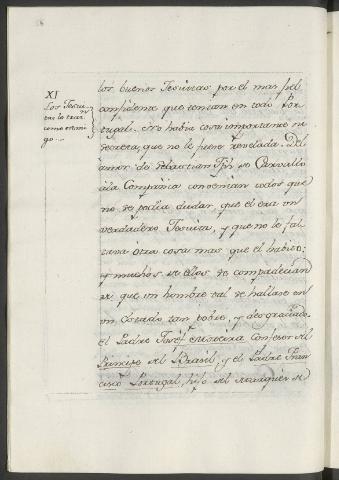 XI
Los Jesui-
tas lo tratan
como esterni-
go...
los buenos Jesuitas por el mas fiel
confidente que tenian en todo Por-
tugal. No habia cosa importante ni
secreta, que no le fuese revelada. Del
amor de Sebastian Jph de Carvallo
ála Compañia convenian todos que
no se podia dudar, que el era un
verdadero Jesuita, y que no le fal-
tava otra cosa mas que el habito:
y muchos de ellos se compadecian
de que un hombre tal se hallase en
un estado tan pobre, y desgraciado.
el Padre Josef Moreira Confesor del
Principe del Brasil, y el Padre Fran
cisco Portugal, hijo del Marques de